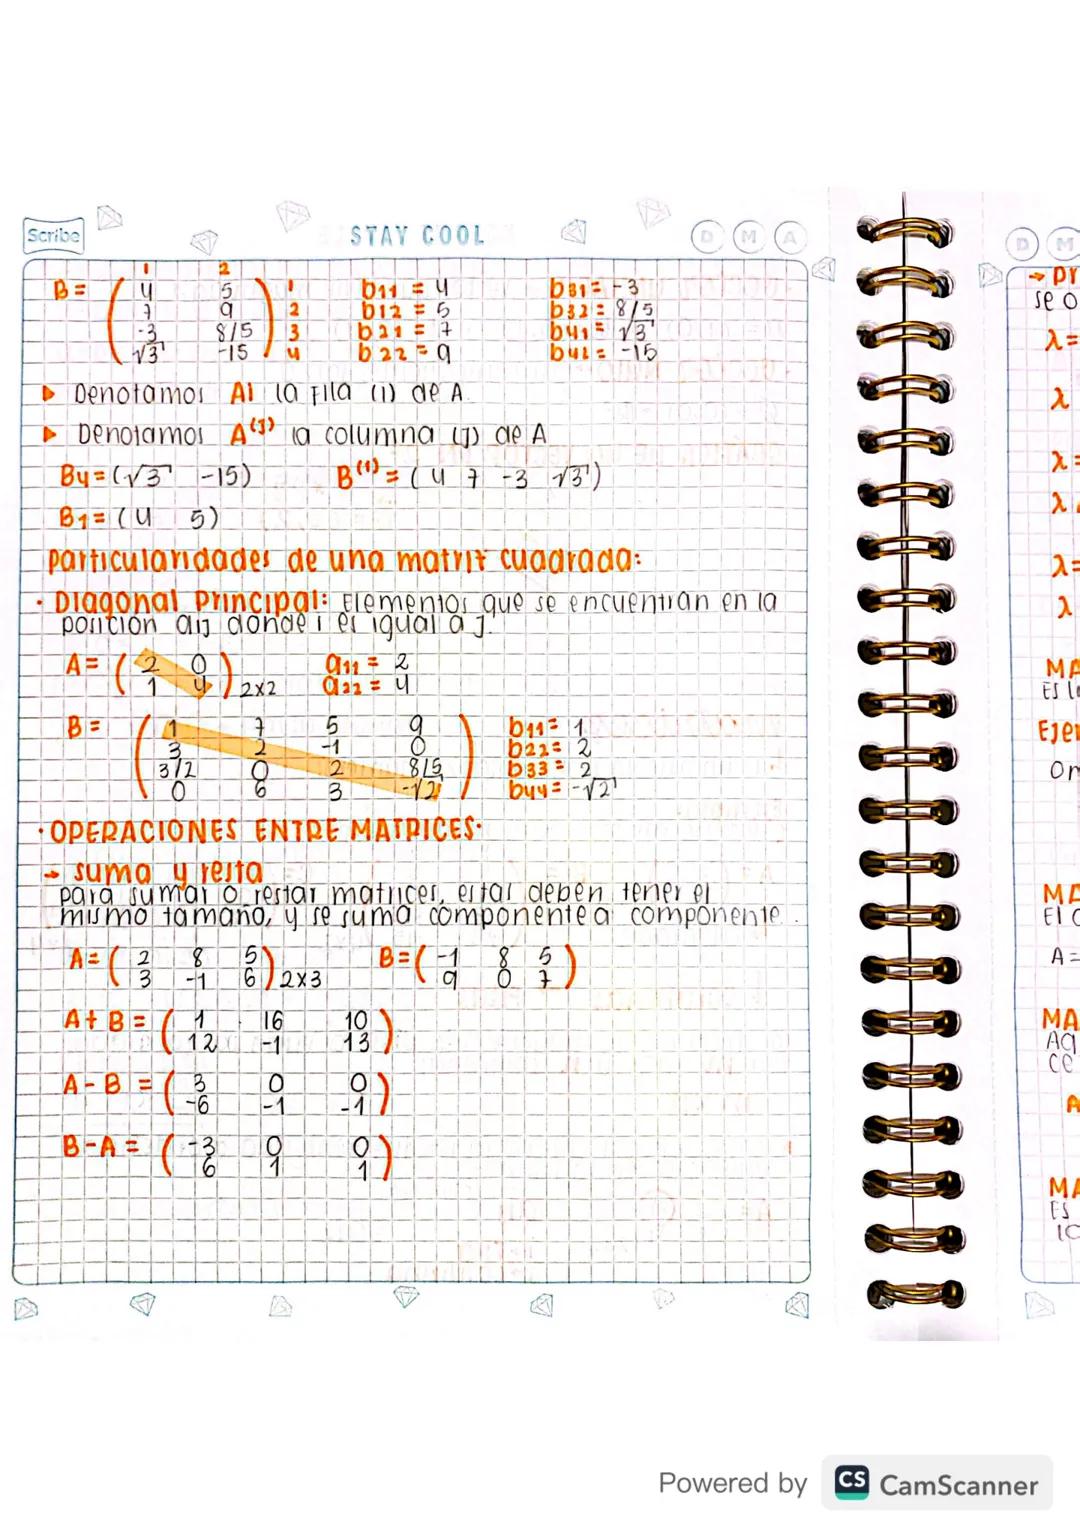 Scribe
STAY COOL
D M A
B = ( 1 2
4 5 ) 1
7 9 2
-3 8/5 3
√3 -15 4
b11 = 4
b12 = 5
b21 = 7
b22 = 9
b31 = -3
b32 = 8/5
b41 = √3
b42 = -15
▸ Denotamos Ai la fila (i) de A.
▸ Denotamos A(j) la columna (j) de A
B4 = (√3 -15) B(1) = ( 4 7 -3 √3 )
B1 = ( 4 5)
particularidades de una matriz cuadrada:
· Diagonal Principal: Elementos que se encuentran en la
posición aij donde i es igual a j.
A = ( 2 0
1 4 ) 2x2
a11 = 2
a22 = 4
B = ( 1 7 5 9
3 2 -1 0
3/2 0 2 8/5
0 6 3 -√2 )
b11 = 1
b22 = 2
b33 = 2
b44 = -√2
· OPERACIONES ENTRE MATRICES·
→ suma y resta
para sumar o restar matrices, estas deben tener el
mismo tamaño, y se suma componente a componente.
A = ( 2 8 5
3 -1 6 ) 2x3
B = ( -1 8 5
9 0 7 )
A + B = ( 1 16 10
12 -1 13 )
A - B = ( 3 0 0
-6 -1 -1 )
B - A = ( -3 0 0
6 1 1 )
D M
→ pr
se o
λ =
λ
λ =
λ
λ =
λ
MA
Es l
Ejer
MA
El
A =
MA
ce
A
MA
Es
Powered by CS CamScanner